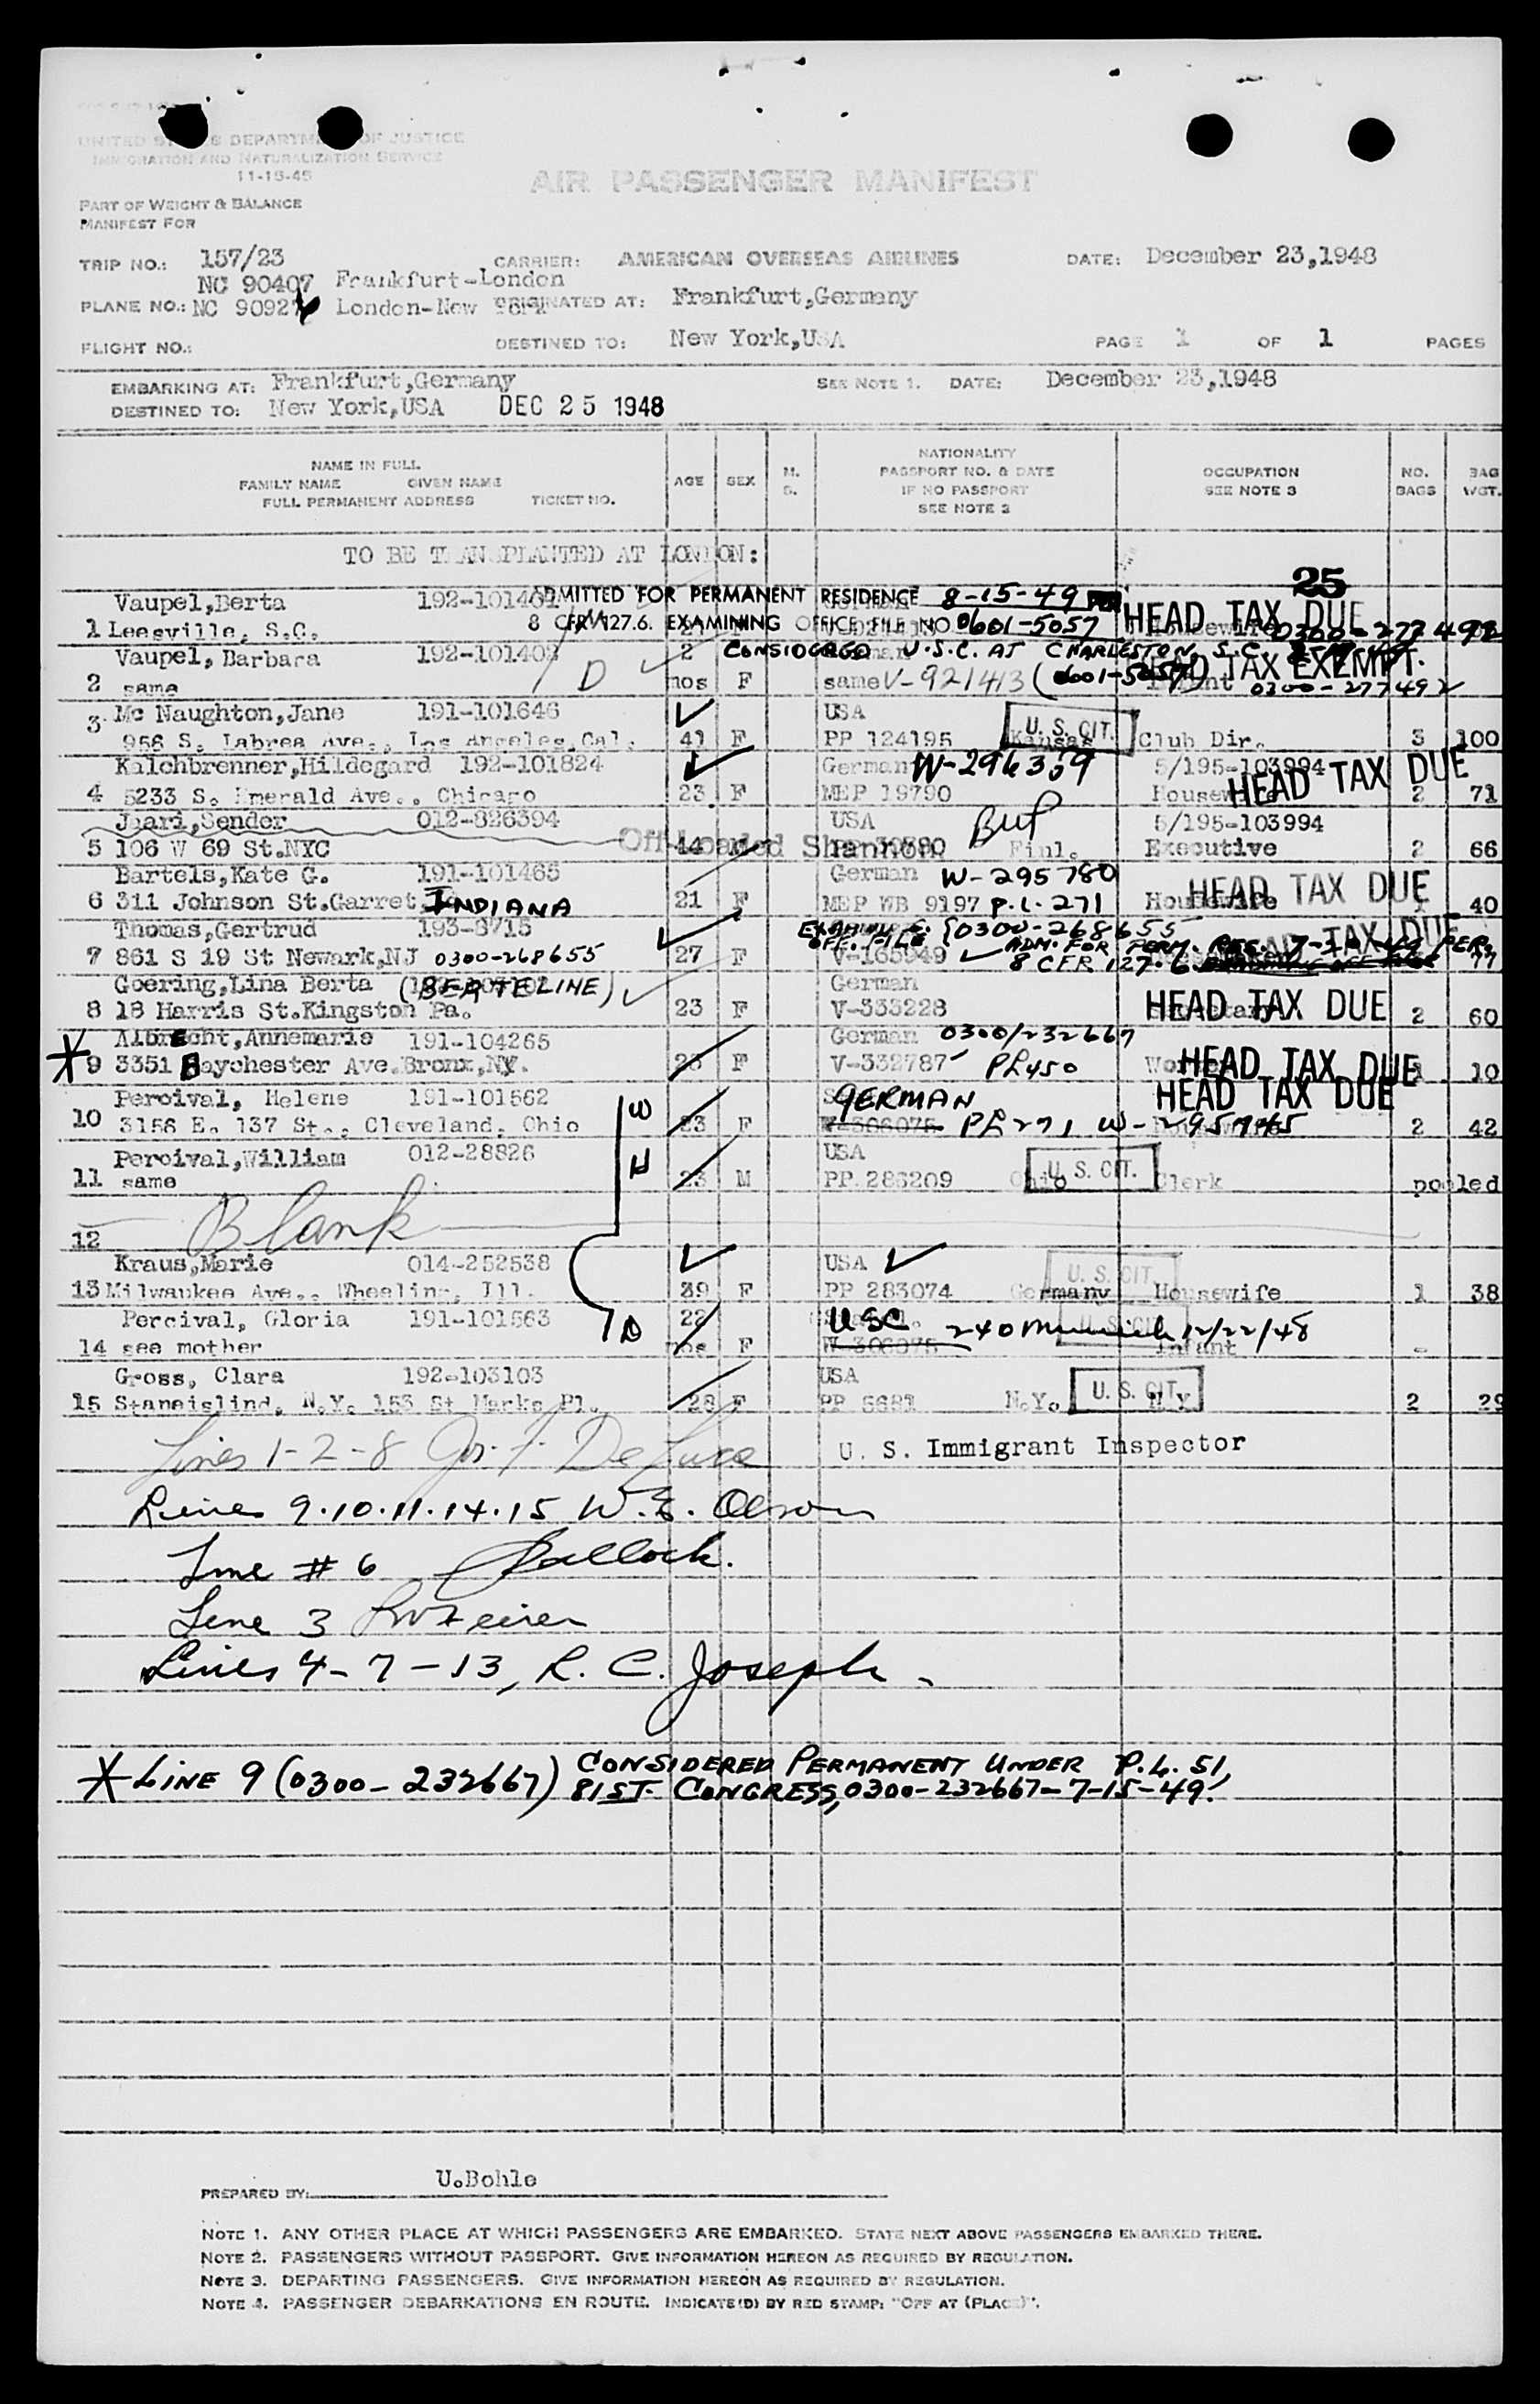 UNITED STATES DEPARTMENT OF JUSTICE
IMMIGRATION AND NATURALIZATION SERVICE
11-15-45
AIR PASSENGER MANIFEST
PART OF WEIGHT & BALANCE
MANIFEST FOR
TRIP NO.: 157/23 CARRIER: AMERICAN OVERSEAS AIRLINES DATE: December 23,1948
NC 90407 Frankfurt-London
PLANE NO.: NC 9092 London-New York ORIGINATED AT: Frankfurt,Germany
FLIGHT NO.: DESTINED TO: New York,USA PAGE 1 OF 1 PAGES
EMBARKING AT: Frankfurt,Germany SEE NOTE 1. DATE: December 23,1948
DESTINED TO: New York,USA DEC 25 1948
NAME IN FULL
FAMILY NAME GIVEN NAME
FULL PERMANENT ADDRESS TICKET NO.
AGE SEX M. S.
NATIONALITY
PASSPORT NO. & DATE
IF NO PASSPORT
SEE NOTE 2
OCCUPATION
SEE NOTE 3
NO. BAGS
BAG WGT.
TO BE TRANSPLANTED AT LONDON:
25
Vaupel,Berta 192-101401 ADMITTED FOR PERMANENT RESIDENCE 8-15-49 HEAD TAX DUE
1 Leesville, S.C. 8 CFR 127.6. EXAMINING OFFICE FILE NO 0601-5057 Housewife 0300-277492
Vaupel, Barbara 192-101402 2 CONSIDERED U.S.C. AT CHARLESTON, S.C. HEAD TAX EXEMPT.
2 same D mos F same V-921413 (0601-5057) Infant 0300-277492
Mc Naughton,Jane 191-101646 USA U. S. CIT.
3 956 S. Labrea Ave., Los Angeles,Cal. 41 F PP 124195 Kansas Club Dir. 3 100
Kalchbrenner,Hildegard 192-101824 German W-296309 5/195-103994 HEAD TAX DUE
4 5233 S. Emerald Ave., Chicago 23 F MEP 19790 Housewife 2 71
Jaari,Sender 012-826394 USA 5/195-103994
5 106 W 69 St.NYC 44 Off Loaded Shannon Finl. Executive 2 66
Bartels,Kate G. 191-101465 German W-295780 HEAD TAX DUE
6 311 Johnson St.Garret INDIANA 21 F MEP WB 9197 P.L. 271 Housewife 1 40
Thomas,Gertrud 193-8715 EXAMINING OFF. FILE 0300-268655 HEAD TAX DUE
7 861 S 19 St Newark,NJ 0300-268655 27 F V-165949 ADM. FOR PERM. RES. PER. 8 CFR 127.6 77
Goering,Lina Berta (BERTELINE) German
8 18 Harris St.Kingston Pa. 23 F V-333228 HEAD TAX DUE 2 60
Albrecht,Annemarie 191-104265 German 0300/232667
* 9 3351 Baychester Ave.Bronx,NY. F V-332787 PL450 HEAD TAX DUE 10
Percival, Helene 191-101562 W GERMAN HEAD TAX DUE
10 3156 E. 137 St., Cleveland, Ohio 23 F V-306075 PL 271 W-295945 Housewife 2 42
Percival,William 012-28826 H USA U. S. CIT.
11 same 23 M PP 286209 Ohio Clerk pooled
12 Blank
Kraus,Marie 014-252538 USA U. S. CIT.
13 Milwaukee Ave., Wheeling, Ill. 39 F PP 283074 Germany Housewife 1 38
Percival, Gloria 191-101563 D 22 USC 240 Munich 12/22/48 U. S. CIT.
14 see mother mos F W-306075 Infant -
Gross, Clara 192-103103 USA U. S. CIT.
15 Staneislind, N.Y. 153 St Marks Pl. 28 F PP 6681 N.Y. N Y 2 29
Lines 1-2-8 Jos. F. DeLuca U. S. Immigrant Inspector
Lines 9.10.11.14.15 W. E. Olson
Line # 6 Ballock.
Line 3
Lines 4-7-13, R. C. Joseph.
* LINE 9 (0300-232667) CONSIDERED PERMANENT UNDER P.L. 51,
81ST CONGRESS, 0300-232667-7-15-49.
PREPARED BY: U.Bohle
NOTE 1. ANY OTHER PLACE AT WHICH PASSENGERS ARE EMBARKED. STATE NEXT ABOVE PASSENGERS EMBARKED THERE.
NOTE 2. PASSENGERS WITHOUT PASSPORT. GIVE INFORMATION HEREON AS REQUIRED BY REGULATION.
NOTE 3. DEPARTING PASSENGERS. GIVE INFORMATION HEREON AS REQUIRED BY REGULATION.
NOTE 4. PASSENGER DEBARKATIONS EN ROUTE. INDICATE(D) BY RED STAMP: "OFF AT (PLACE)".